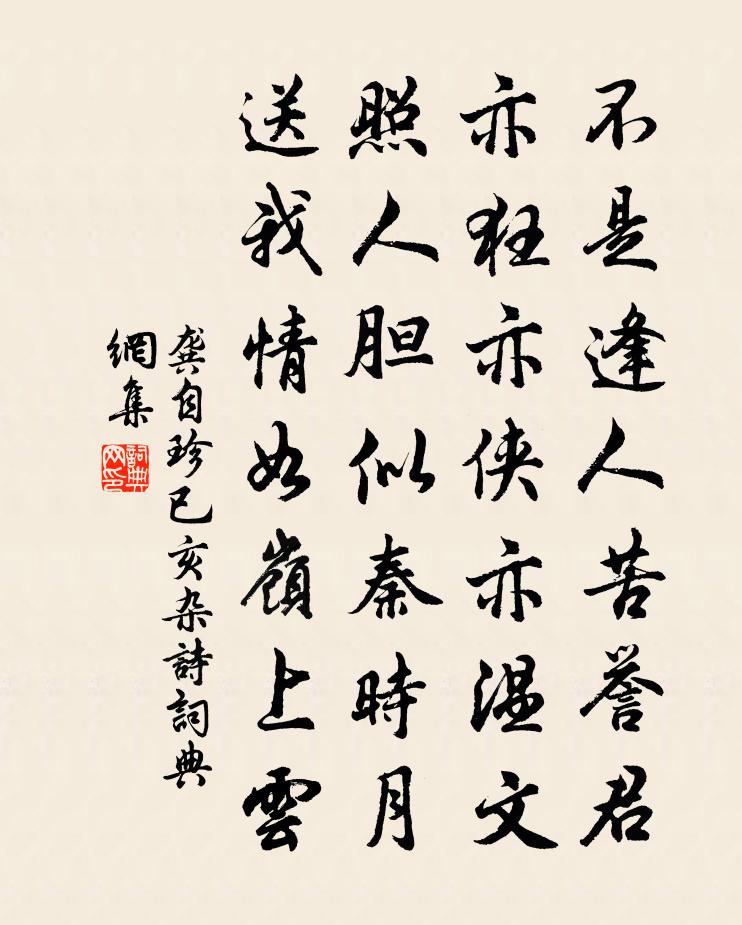 不是逢人苦誉君
亦狂亦侠亦温文
照人胆似秦時月
送我情如嶺上雲
龚自珍已亥杂詩詞典
網集
詞典
网印